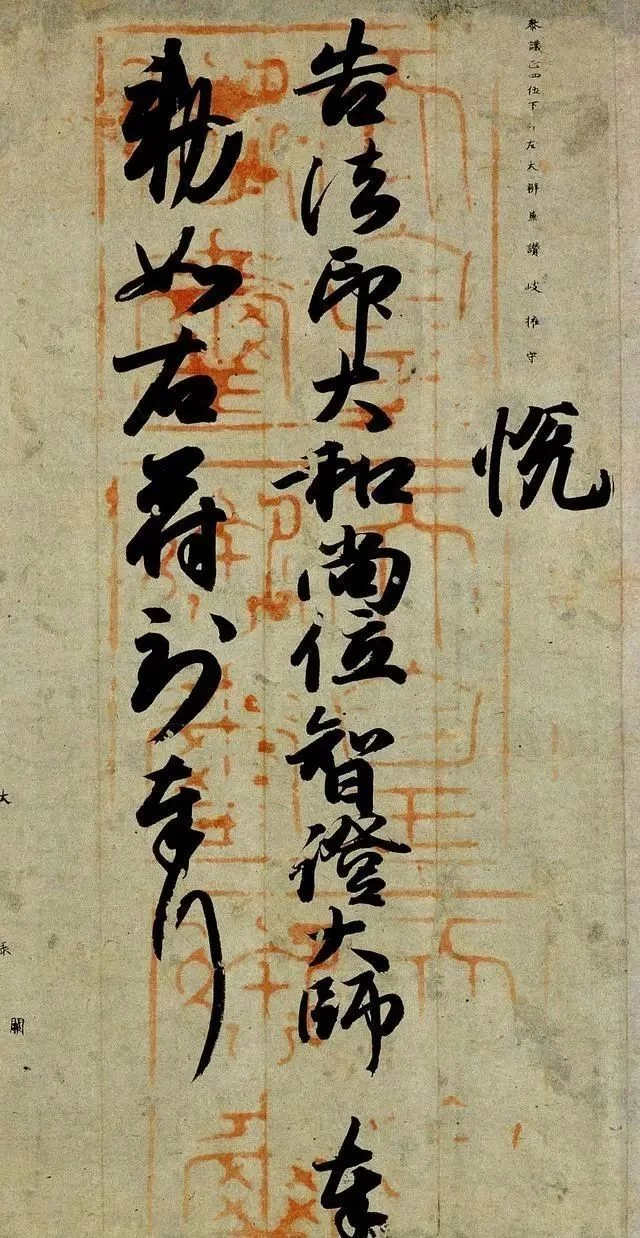 參議正四位下行左大辨兼讃岐權守
悦
告法印大和尚位智證大師 奉
勅如右符到奉行
大 闕